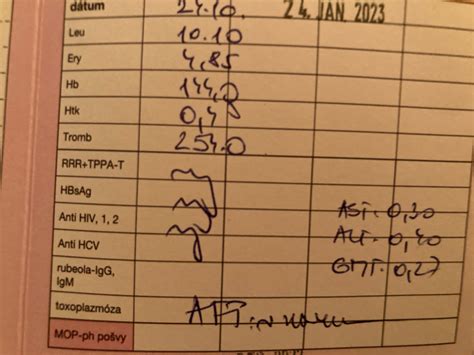 dátum 24.10. 24. JAN 2023
Leu 10.10
Ery 4,85
Hb 144,0
Htk 0,4
Tromb 254.0
RRR+TPPA-T
HBsAg
Anti HIV, 1, 2 AST. 0,30
Anti HCV ALT. 0,40
rubeola-IgG, GMT. 0,27
IgM
toxoplazmóza
MOP-ph pošvy